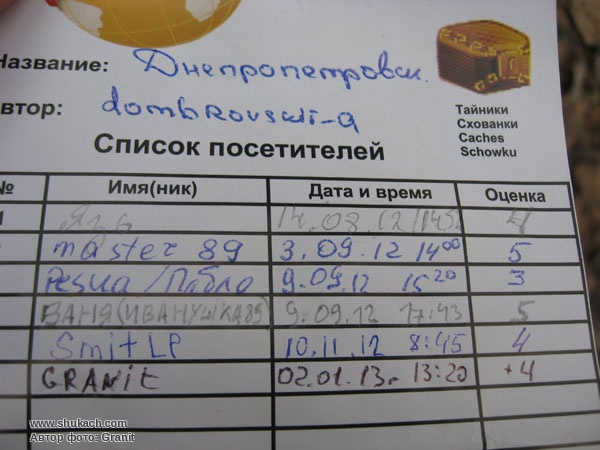 Название: Днепропетровск.
Автор: dombrovskii-a
Тайники
Сховaнки
Caches
Schowku
Список посетителей
№ Имя(ник) Дата и время Оценка
14.08.12/14 4
master 89 3.09.12 14⁰⁰ 5
/Пабло 9.09.12 15²⁰ 3
ВАНЯ(ИВАНУШКА89) 9.09.12 17:43 5
Smit LP 10.11.12 8:45 4
GRANIt 02.01.13. 13:20 +4
www.shukach.com
Автор фото: Granit